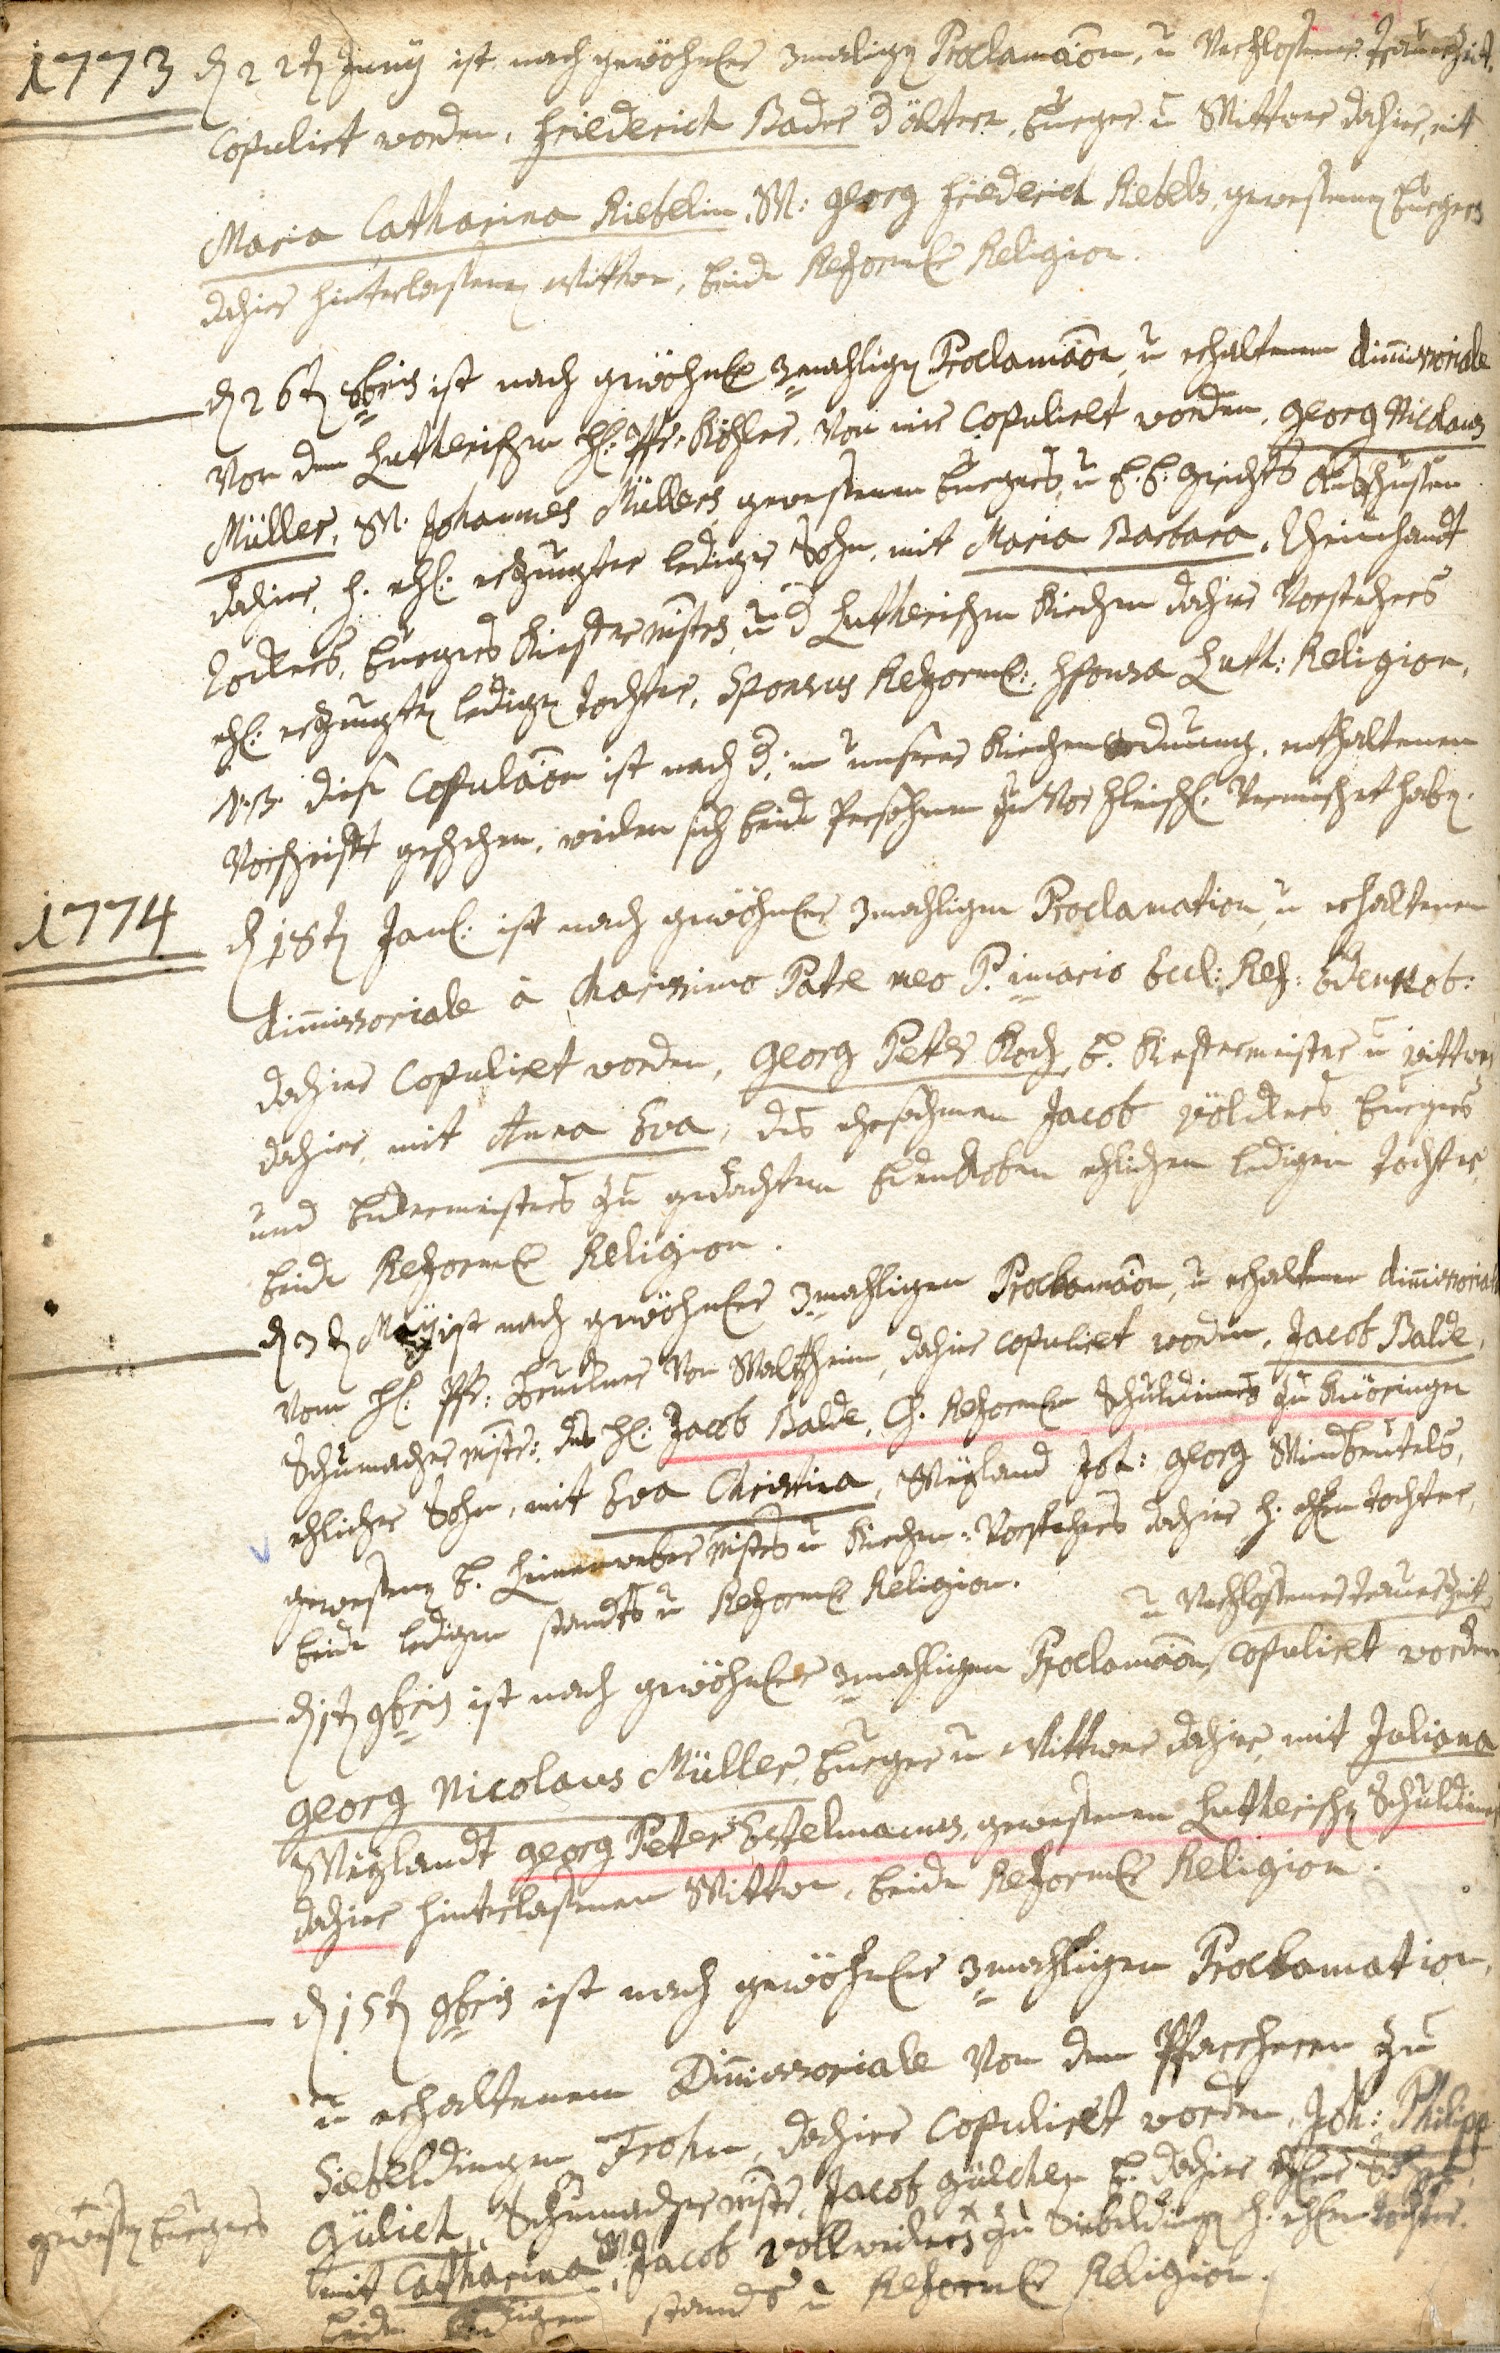 1773 d 22t Junÿ ist nach gewöhnl. 3maligen Proclamaõn, u. Verflossener Trauerzeit,
Copulirt worden, Friederich Bader d ältere, burger u Wittwer dahier, mit
Maria Catharina Kiebelin, W: Georg Friederich Kiebels, gewesenen burgers
dahier hinterlassenen Wittwe, beide Reforml. Religion.
d 26t 8bris ist nach gewöhnl. 3mahligen Proclamaõn, u erhaltenem dimissoriale
Von dem Lutherischen H: Pfr: Köhler, Von mir Copulirt worden, Georg Nicolaus
Müller, W. Johannes Müllers, gewesenen burgers, u E.E. Gerichts
dahier, h. ehl. erzeugter lediger Sohn, mit Maria Barbara,
burgers Kiefermstrs, u d Lutherischen Kirchen dahier Vorstehers
ehl. erzeugten ledigen Tochter, Sponsus Reforml., sponsa Luth: Religion.
N.B. diese Copulaõn ist nach d, in unserer Kirchenordnung, enthaltenen
Vorschrifft geschehen, weilen sich beide Persohnen zuvor fleischl. Vermischet haben.
1774 d 18t Janl. ist nach gewöhnl. 3mahligen Proclamation, u erhaltenem
dimissoriale à Charissimo Patre meo P. imario Eccl: Ref: Edenkob:
dahier Copulirt worden, Georg Peter Koch, b. Kiefermeister u wittwer
dahier, mit Anna Eva, des ehrsahmen Jacob Völckers, burgers
und beckermeisters zu gedachtem Edenkoben ehlichen ledigen Tochter,
beide Reforml Religion.
d 3t Maÿ ist nach gewöhnl. 3mahligen Proclamaõn, u erhaltenem dimissorial
Vom H. Pfr: Von Waltsheim, dahier copulirt worden, Jacob Balde,
Schumacher mstr: des H. Jacob Balde, Ch. Reformln Schuldiners zu Knöringen
ehlicher Sohn, mit Eva Christina, Weyland Joh: Georg Windbeutels,
gewesenen b. Leineweber mstrs u Kirchen-Vorstehers dahier h. ehln Tochter,
beide ledigen standts u Reforml Religion.
u Verflossener trauerzeit,
d 1t 9bris ist nach gewöhnl. 3mahligen Proclamaõn, Copulirt worden
Georg Nicolaus Müller, burger u Wittwer dahier, mit Juliana
Weylandt Georg Peter Estelmanns, gewesenen Lutherischen Schuldiners
dahier hinterlassenen Wittwe, beide Reforml Religion.
d 15t 9bris ist nach gewöhnl. 3mahligen Proclamation,
u erhaltenem Dimissoriale Von dem Pfarrherrn zu
Siebeldingen Frohn, dahier Copulirt worden, Joh: Philipp
Gülich, Schumacher mstr, Jacob Gülichen b. dahier ehl. Sohn,
gewesenen burgers
mit Catharina, W. Jacob Vollweilers zu Siebeldingen h. ehln Tochter,
beide ledigen stands u Reforml Religion.